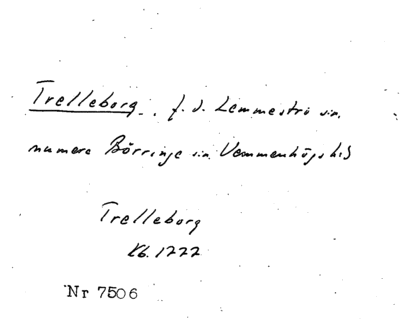 Trelleborg, f.d. Lemmeströ sn.
numera Börringe sn Vemmenhögs hd
Trelleborg
Kb. 1222
Nr 7506